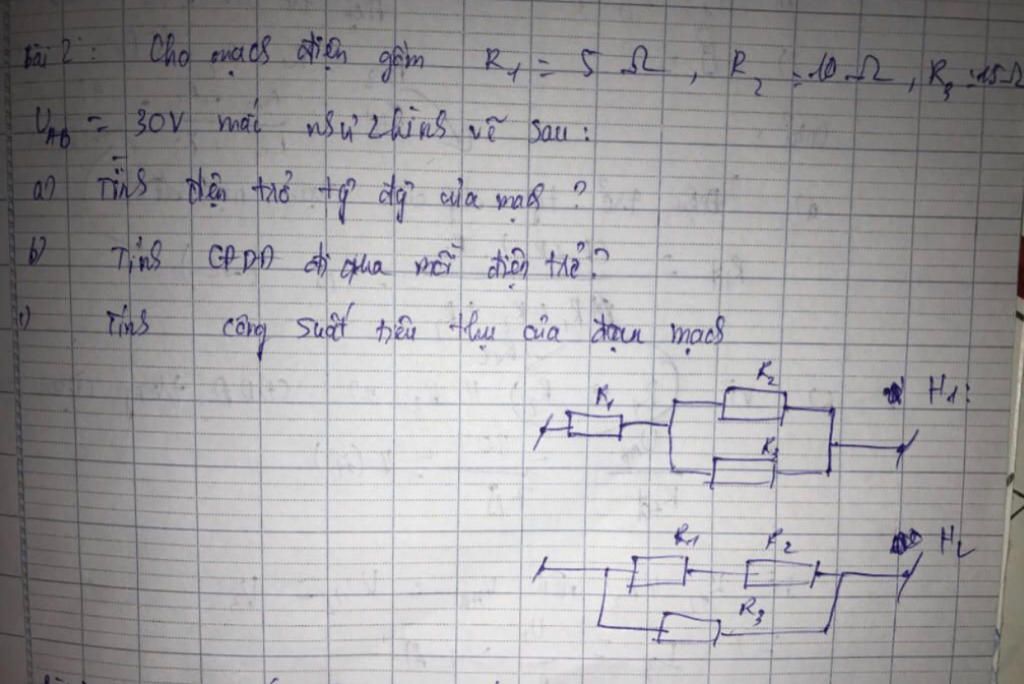 Bài 2: Cho mạch điện gồm R1 = 5 Ω, R2 = 10 Ω, R3 = 15Ω
UAB = 30V mắc như 2 hình vẽ sau:
a) Tính điện trở tg đg của mạch?
b) Tính CĐDĐ đi qua mỗi điện trở?
c) Tính công suất tiêu thụ của đoạn mạch
H1:
R1
R2
R3
H2
R1 R2
R3